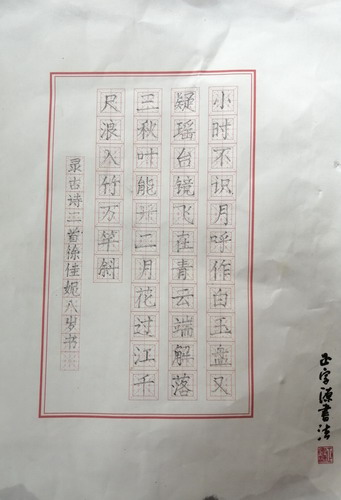 小时不识月呼作白玉盘又
疑瑶台镜飞在青云端解落
三秋叶能开二月花过江千
尺浪入竹万竿斜
录古诗二首徐佳妮八岁书
正字源书法